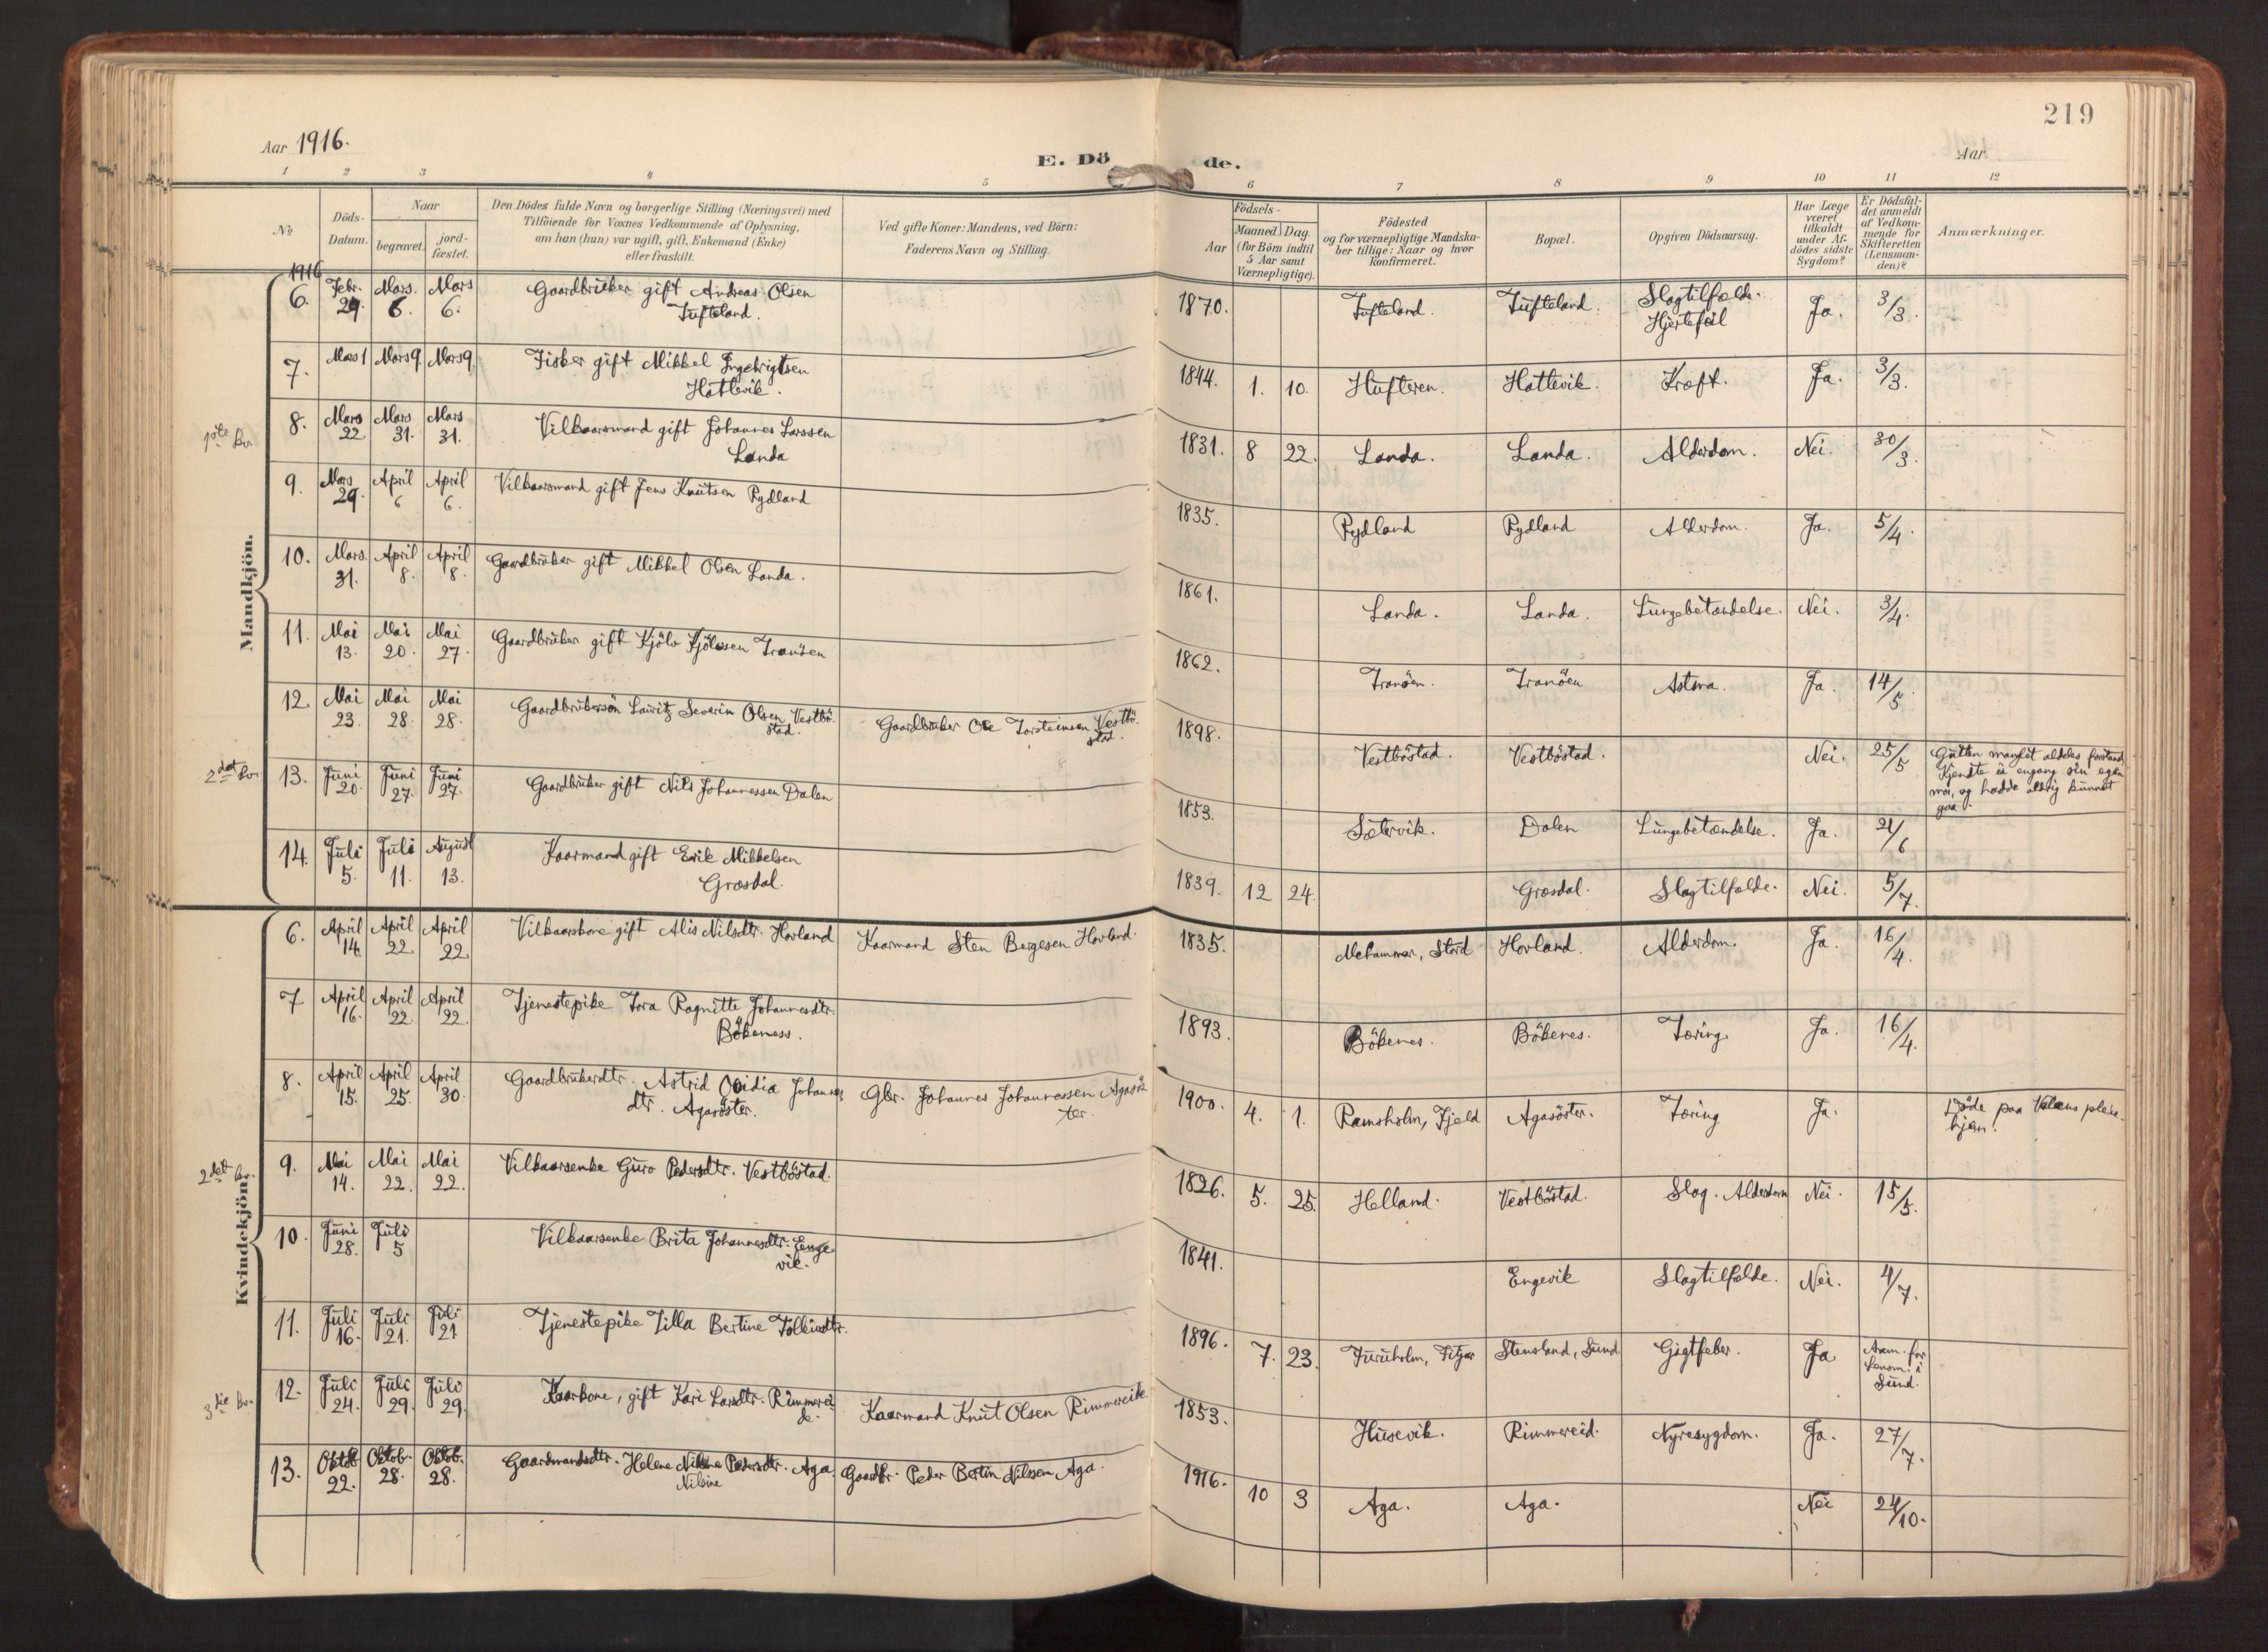 219
Aar 1916.
E. Dö de.
Aar
1 2 3 4 5 6 7 8 9 10 11 12
No
Döds-Datum.
Naar
begravet.
jord-fæstet.
Den Dödes fulde Navn og borgerlige Stilling (Næringsvei) med
Tilföiende for Voxnes Vedkommende af Oplysning,
om han (hun) var ugift, gift, Enkemand (Enke)
eller fraskilt.
Ved gifte Koner: Mandens, ved Börn:
Faderens Navn og Stilling.
Födsels-
Aar
Maaned. Dag.
(for Börn indtil
5 Aar samt
Værnepligtige).
Födested
og for værnepligtige Mandska-
ber tillige: Naar og hvor
konfirmeret.
Bopæl.
Opgiven Dödsaarsag.
Har Læge
været
tilkaldt
under Af-
dödes sidste
Sygdom?
Er Dödsfal-
det anmeldt
af Vedkom-
mende for
Skifteretten
(Lensman-
den)?
Anmærkninger.
Mandkjön.
1916
6. Febr. 29. Mars. 6. Mars 6. Gaardbruker gift Andreas Olsen
Tufteland. 1870. Tufteland. Tufteland. Slagtilfælde.
Hjertefeil Ja. 3/3.
7. Mars 1 Mars 9 Mars 9. Fisker gift Mikkel Ingebrigtsen
Hattevik. 1844. 1. 10. Hufteren. Hattevik. Kræft. Ja. 3/3.
1ste kv.
8. Mars 22 Mars 31. Mars 31. Vilkaarsmand gift Johannes Larssen
Landa 1831. 8 22. Landa. Landa. Alderdom. Nei. 30/3.
9. Mars 29. April 6 April 6. Vilkaarsmand gift Jens Knutsen Rydland 1835. Rydland Rydland Alderdom. Ja. 5/4.
10. Mars 31. April 8. April 8. Gaardbruker gift Mikkel Olsen Landa. 1861. Landa. Landa. Lungebetændelse. Nei. 3/4.
11. Mai 13. Mai 20. Mai 27. Gaardbruker gift Kjölv Kjölvssen Tranöen 1862. Tranöen. Tranöen Astma. Ja. 14/5.
12. Mai 23. Mai 28. Mai 28. Gaardbrukersön Lauritz Severin Olsen Vestbö-
stad. Gaardbruker Ole Torsteinsen Vestbö-
stad. 1898. Vestböstad. Vestböstad. Nei. 25/5 Gutten manglet aldeles forstand
Kjendte ei engang sin egen
mor, og hadde aldrig kunnet
gaa.
2det kv.
13. Juni 20. Juni 27. Juni 27. Gaardbruker gift Nils Johannessen Dalen 1853. Sætervik. Dalen Lungebetændelse. Ja. 21/6
14. Juli 5. Juli 11. August 13. Kaarmand gift Erik Mikkelsen
Græsdal. 1839. 12 24. Græsdal. Slagtilfælde. Nei. 5/7.
Kvindekjön.
6. April 14. April 22. April 22. Vilkaarskone gift Alis Nilsdtr. Hovland Kaarmand Sten Bergesen Hovland. 1835. Mehammer, Stord Hovland. Alderdom. Ja. 16/4.
7 April 16. April 22. April 22. Tjenestepike Tora Ragnitte Johannesdtr.
Bökeness. 1893. Bökenes. Bökenes. Tæring. Ja. 16/4.
8. April 15. April 25. April 30. Gaardbrukerdtr. Astrid Ovidia Johannes
dtr. Agasöster. Gbr. Johannes Johannessen Agasös
ter. 1900. 4. 1. Ramsholm, Fjeld Agasöster. Tæring Ja. Döde paa Valens pleie-
hjem.
2det kv.
9. Mai 14. Mai 22. Mai 22. Vilkaarsenke Guro Pedersdtr. Vestböstad. 1826. 5. 25. Helland. Vestböstad. Slag. Alderdom Nei. 15/5.
10. Juni 28. Juli 5 Vilkaarsenke Brita Johannesdtr. Enge-
vik. 1841. Engevik Slagtilfælde. Nei. 4/7.
11. Juli 16. Juli 21. Juli 21 Tjenestepike Tilla Bertine Tollevsdtr. 1896. 7. 23. Furuholm, Fitjar Stensland, Sund. Gigtfeber. Ja Anm. for
Lensm. i
Sund.
3die kv.
12. Juli 24. Juli 29. Juli 29. Kaarkone, gift Kari Larsdtr. Rimmerei-
de. Kaarmand Knut Olsen Rimmereide 1853. Husevik. Rimmereid. Nyresygdom. Ja. 27/7.
13. Oktob 22. Oktob. 28. Oktob. 28. Gaardmandsdtr. Helene Nilsine Pedersdtr. Aga
Nilsine Gaardbr. Peder Bertin Nilssen Aga. 1916. 10 3 Aga. Aga. Nei 24/10.